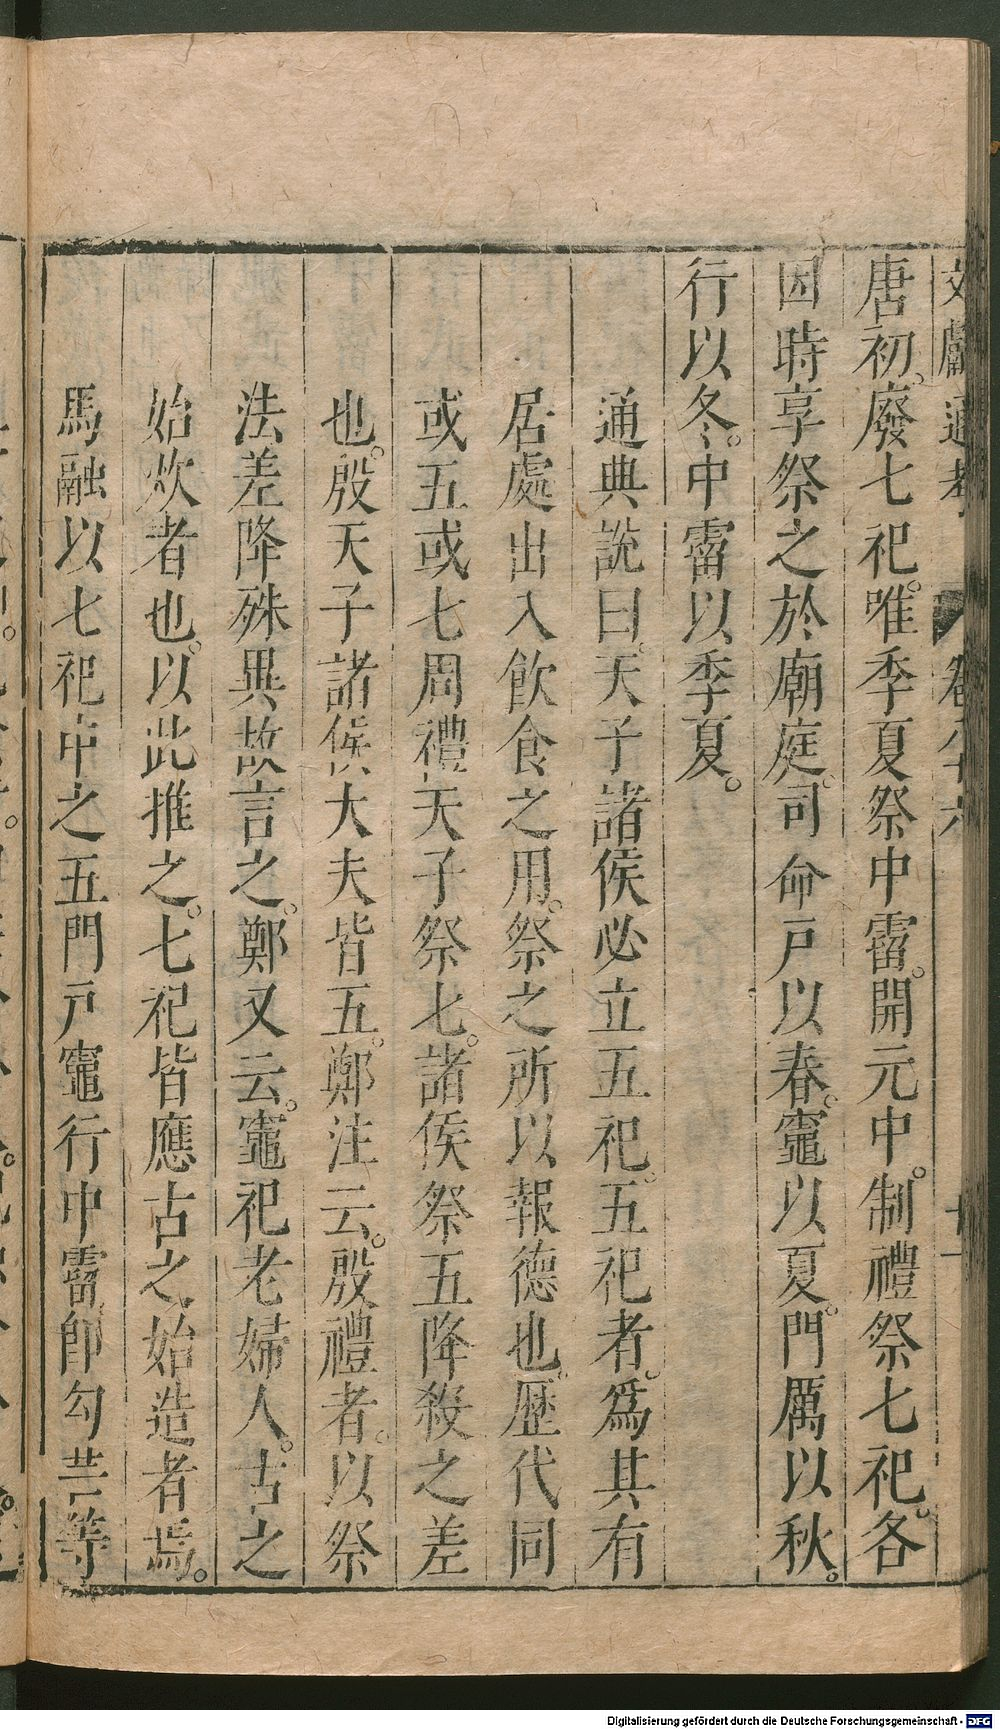 文獻通考 卷八十六 十一
唐初。廢七祀。唯季夏祭中霤。開元中。制禮祭七祀。各
因時享祭之於廟庭。司命戶以春。竈以夏。門厲以秋。
行以冬。中霤以季夏。
通典說曰。天子諸侯必立五祀。五祀者。爲其有
居處出入飲食之用。祭之所以報德也。歷代同
或五或七周禮天子祭七。諸侯祭五降殺之差
也。殷天子諸侯大夫皆五。鄭注云。殷禮者。以祭
法差降殊異故言之。鄭又云。竈祀老婦人。古之
始炊者也。以此推之。七祀皆應古之始造者焉。
馬融以七祀中之五門戶竈行中霤卽勾芒等
Digitalisierung gefördert durch die Deutsche Forschungsgemeinschaft - DFG